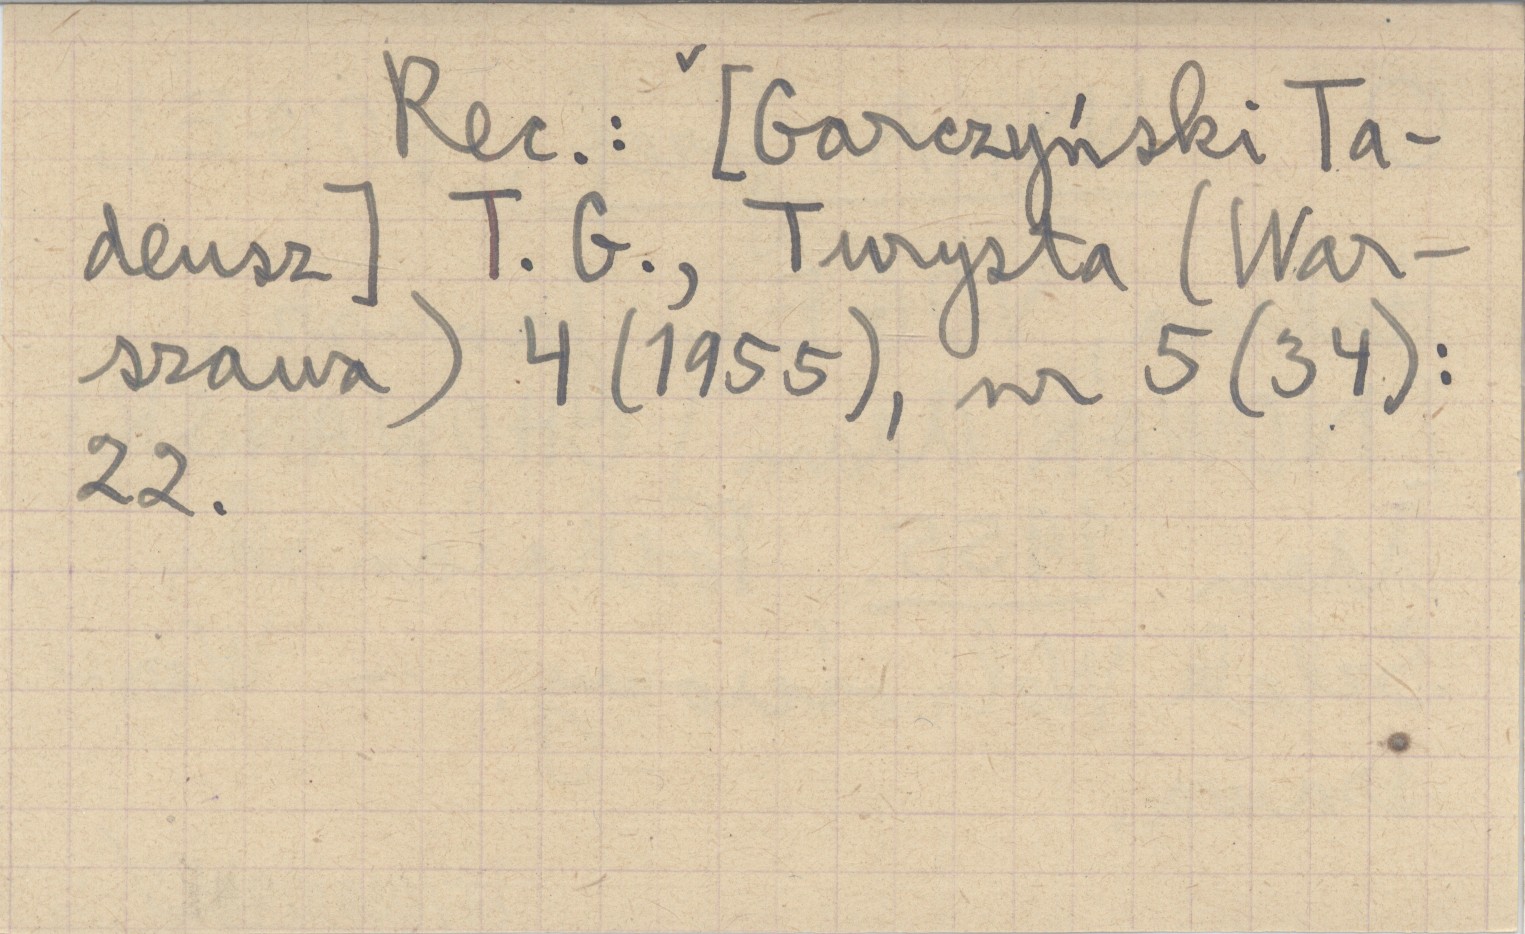 Rec.: [Garczyński Ta-
deusz] T. G., Turysta (War-
szawa) 4 (1955), nr 5 (34):
22.